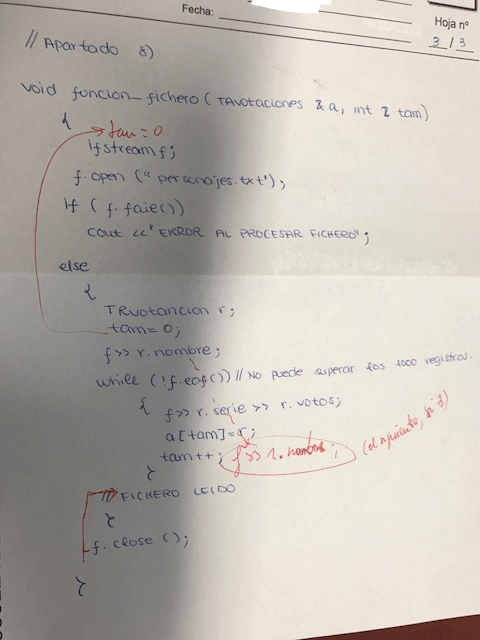 Fecha:
Hoja nº
3 / 3
// Apartado 8)
void funcion_fichero ( TAvotaciones & a, int & tam)
{
tam = 0
ifstream f;
f.open (" personajes.txt");
if ( f. faie())
cout << "ERROR AL PROCESAR FICHERO";
else
{
TRvotancion r;
tam= 0;
f>> r.nombre;
while (!f.eof()) // No puede superar los 1000 registros.
{ f>> r.serie >> r.votos;
a[tam]=r;
tam++; f >> r.nombre; (el siguiente, si
}
// FICHERO LEIDO
}
f. close ();
}